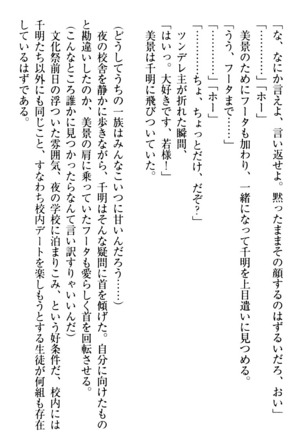 「な、なにか言えよ、言い返せよ。黙ったままその顔するのはずるいだろ、おい」
「…………」「ホー」
美景のためにフータも加わり、一緒になって千明を上目遣いに見つめる。
「うう、フータまで……」
「…………」「ホー」
「………ちょ、ちょっとだけ、だぞ？」
ツンデレ主が折れた瞬間、
「はいっ。大好きです、若様！」
美景は千明に飛びついていた。
（どうしてうちの一族はみんなこいつに甘いんだろう……）
夜の校舎を静かに歩きながら、千明はそんな疑問に首を傾げた。自分に向けたもの
と勘違いしたのか、美景の肩に乗っていたフータも愛らしく首を回転させる。
（こんなところ誰かに見つかったらなんて言い訳すりゃいいんだ）
文化祭前日の浮ついた雰囲気、夜の学校に泊まりこみ、という好条件だ、校内には
千明たち以外にも同じこと、すなわち校内デートを楽しもうとする生徒が何組も存在
しているはずである。